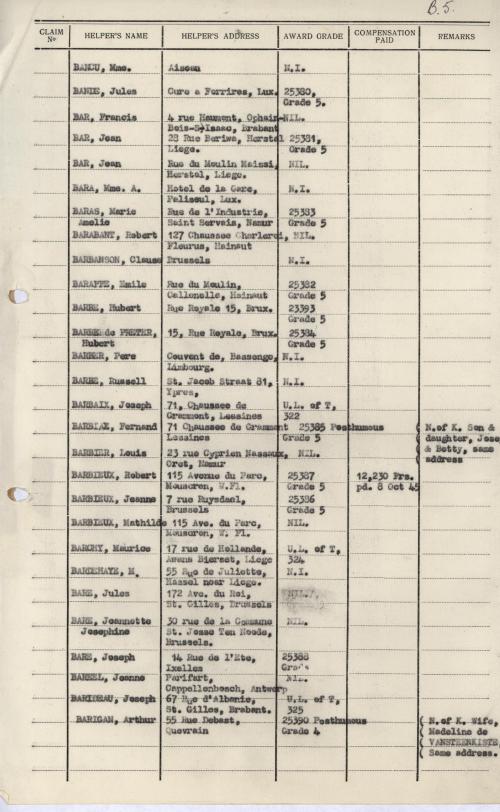 B.5.
CLAIM No HELPER'S NAME HELPER'S ADDRESS AWARD GRADE COMPENSATION PAID REMARKS
BANCU, Mme. Aiseau N.I.
BANDE, Jules Cure a Ferrires, Lux. 25380,
Grade 5.
BAR, Francis 4 rue Haumont, Ophain- NIL.
Bois-S-Isaac, Brabant
BAR, Jean 28 Rue Beriwa, Herstal 25381,
Liege. Grade 5
BAR, Jean Rue du Moulin Maissi, NIL.
Herstal, Liege.
BARA, Mme. A. Hotel de la Gare, N.I.
Paliseul, Lux.
BARAS, Marie Rue de l'Industrie, 25383
Amelie Saint Servais, Namur Grade 5
BARABANT, Robert 127 Chaussee Charleroi, NIL.
Fleurus, Hainaut
BARBANSON, Clause Brussels N.I.
BARAFFE, Emile Rue du Moulin, 25382
Callenelle, Hainaut Grade 5
BARBE, Hubert Rue Royale 15, Brux. 23393
Grade 5
BARBE de PRETER, 15, Rue Royale, Brux. 25384
Hubert Grade 5
BARBER, Pere Couvent de, Bassenge, N.I.
Limbourg.
BARBE, Russell St. Jacob Straat 81, N.I.
Ypres,
BARBAIX, Joseph 71, Chaussee de U.L. of T,
Grammont, Lessines 322
BARBIAX, Fernand 71 Chaussee de Grammont 25385 Posthumous N.of K. Son &
Lessines Grade 5 daughter, Jose
BARBIER, Louis 23 rue Cyprien Nassaux, NIL. & Betty, same
Oret, Namur address
BARBIEUX, Robert 115 Avenue du Parc, 25387 12,230 Frs.
Mouscron, W.Fl. Grade 5 pd. 8 Oct 45
BARBIEUX, Jeanne 7 rue Ruysdael, 25386
Brussels Grade 5
BARBIEUX, Mathilde 115 Ave. du Parc, NIL.
Mouscron, W. Fl.
BARCHY, Maurice 17 rue de Hollande, U.L. of T,
Awans Bierset, Liege 324
BARDEHAYE, M. 55 Rue de Juliette, N.I.
Hassel near Liege.
BARE, Jules 172 Ave. du Roi, NIL.
St. Gilles, Brussels
BARE, Jeannette 30 rue de la Commune NIL.
Josephine St. Josse Ten Noode,
Brussels.
BARE, Joseph 14 Rue de l'Ete, 25388
Ixelles Grade
BARSEL, Jeanne Parifart, NIL.
Cappellenbosch, Antwerp
BARIDEAU, Joseph 67 Rue d'Albanie, U.L. of T,
St. Gilles, Brabant. 325
BARIGAN, Arthur 55 Rue Debast, 25390 Posthumous N.of K. Wife,
Quevrain Grade 4 Madeline de
VANSTEENKISTE,
Same address.